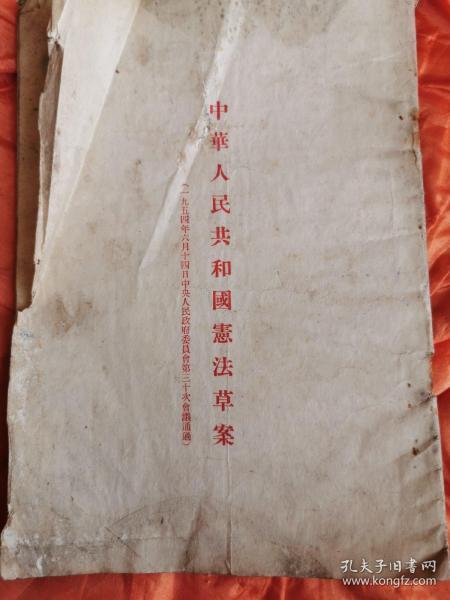 中華人民共和國憲法草案
(一九五四年六月十四日中央人民政府委員會第三十次會議通過)
孔夫子旧书网
www.kongfz.com